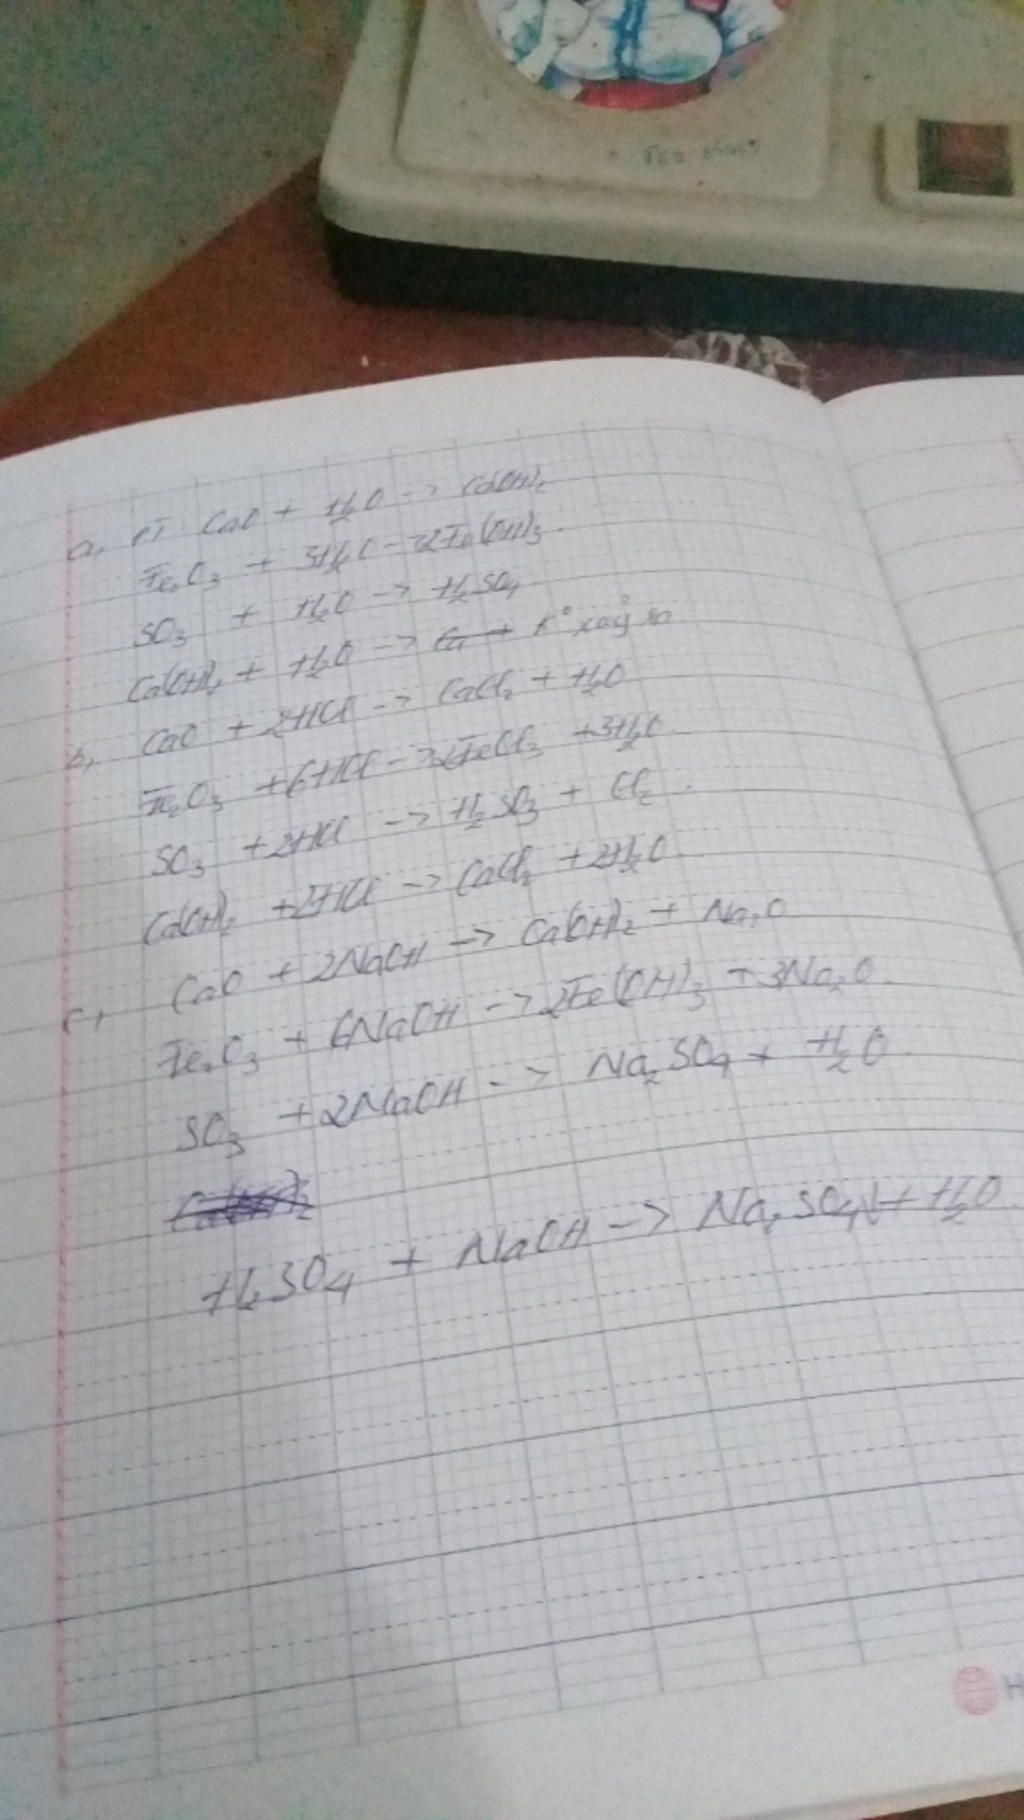 a, PT CaO + H₂O -> Ca(OH)₂
Fe₂O₃ + 3H₂O -> 2Fe(OH)₃
SO₃ + H₂O -> H₂SO₄
Ca(OH)₂ + H₂O -> K° xảy ra
b, CaO + 2HCl -> CaCl₂ + H₂O
Fe₂O₃ + 6HCl -> 2FeCl₃ + 3H₂O
SO₃ + 2HCl -> H₂SO₃ + Cl₂
Ca(OH)₂ + 2HCl -> CaCl₂ + 2H₂O
c, CaO + 2NaOH -> Ca(OH)₂ + Na₂O
Fe₂O₃ + 6NaOH -> 2Fe(OH)₃ + 3Na₂O
SO₃ + 2NaOH -> Na₂SO₄ + H₂O
H₂SO₄ + NaOH -> Na₂SO₄ + H₂O